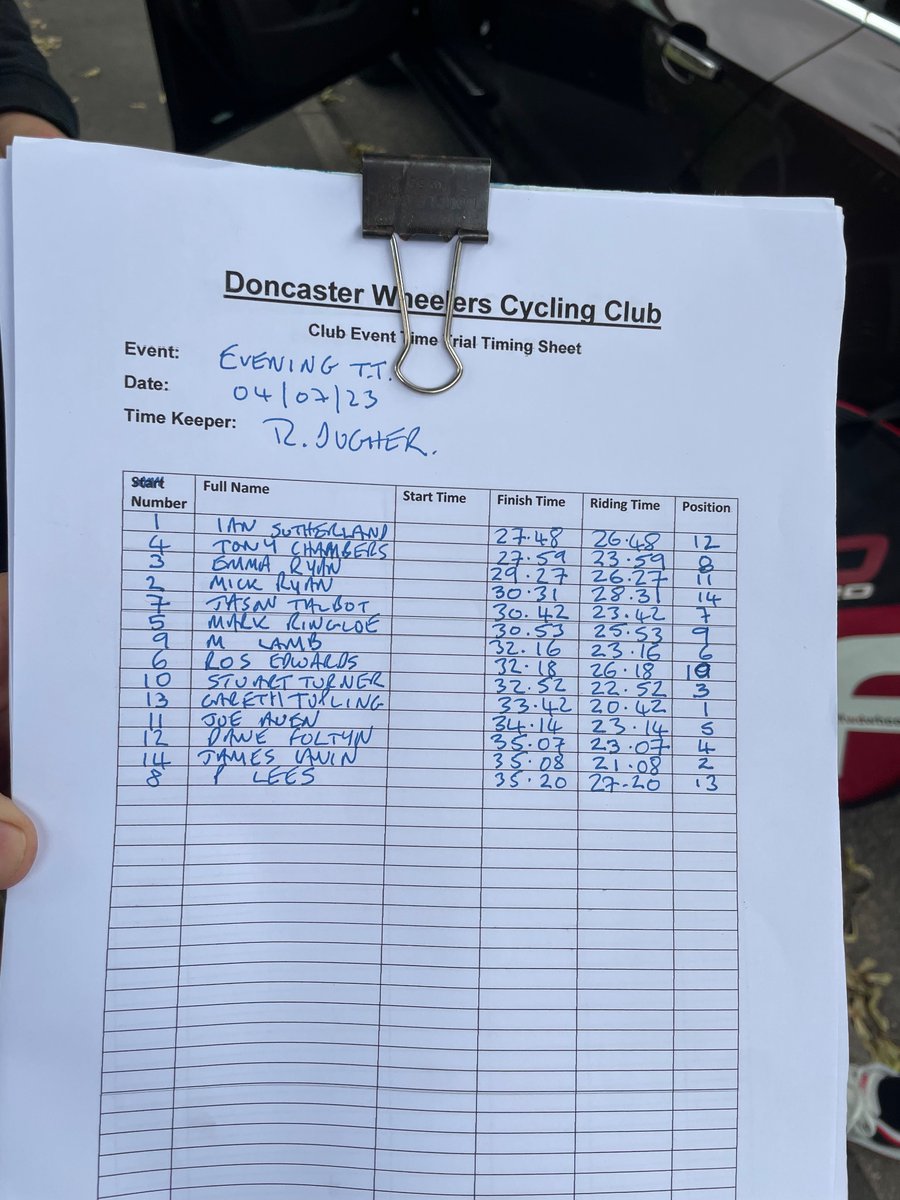 Doncaster Wheelers Cycling Club
Club Event Time Trial Timing Sheet
Event: EVENING T.T.
Date: 04/07/23
Time Keeper: R. DUGHER.
Start Number Full Name Start Time Finish Time Riding Time Position
1 IAN SUTHERLAND 27.48 26.48 12
4 TONY CHAMBERS 27.59 23.59 8
3 EMMA RYAN 29.27 26.27 11
2 MICK RYAN 30.31 28.31 14
7 JASON TALBOT 30.42 23.42 7
5 MARK RINGLOE 30.53 25.53 9
9 M LAMB 32.16 23.16 6
6 ROS EDWARDS 32.18 26.18 10
10 STUART TURNER 32.52 22.52 3
13 GARETH TURLING 33.42 20.42 1
11 JOE AVEN 34.14 23.14 5
12 DANE FOLTYN 35.07 23.07 4
14 JAMES 35.08 21.08 2
8 P LEES 35.20 27.20 13